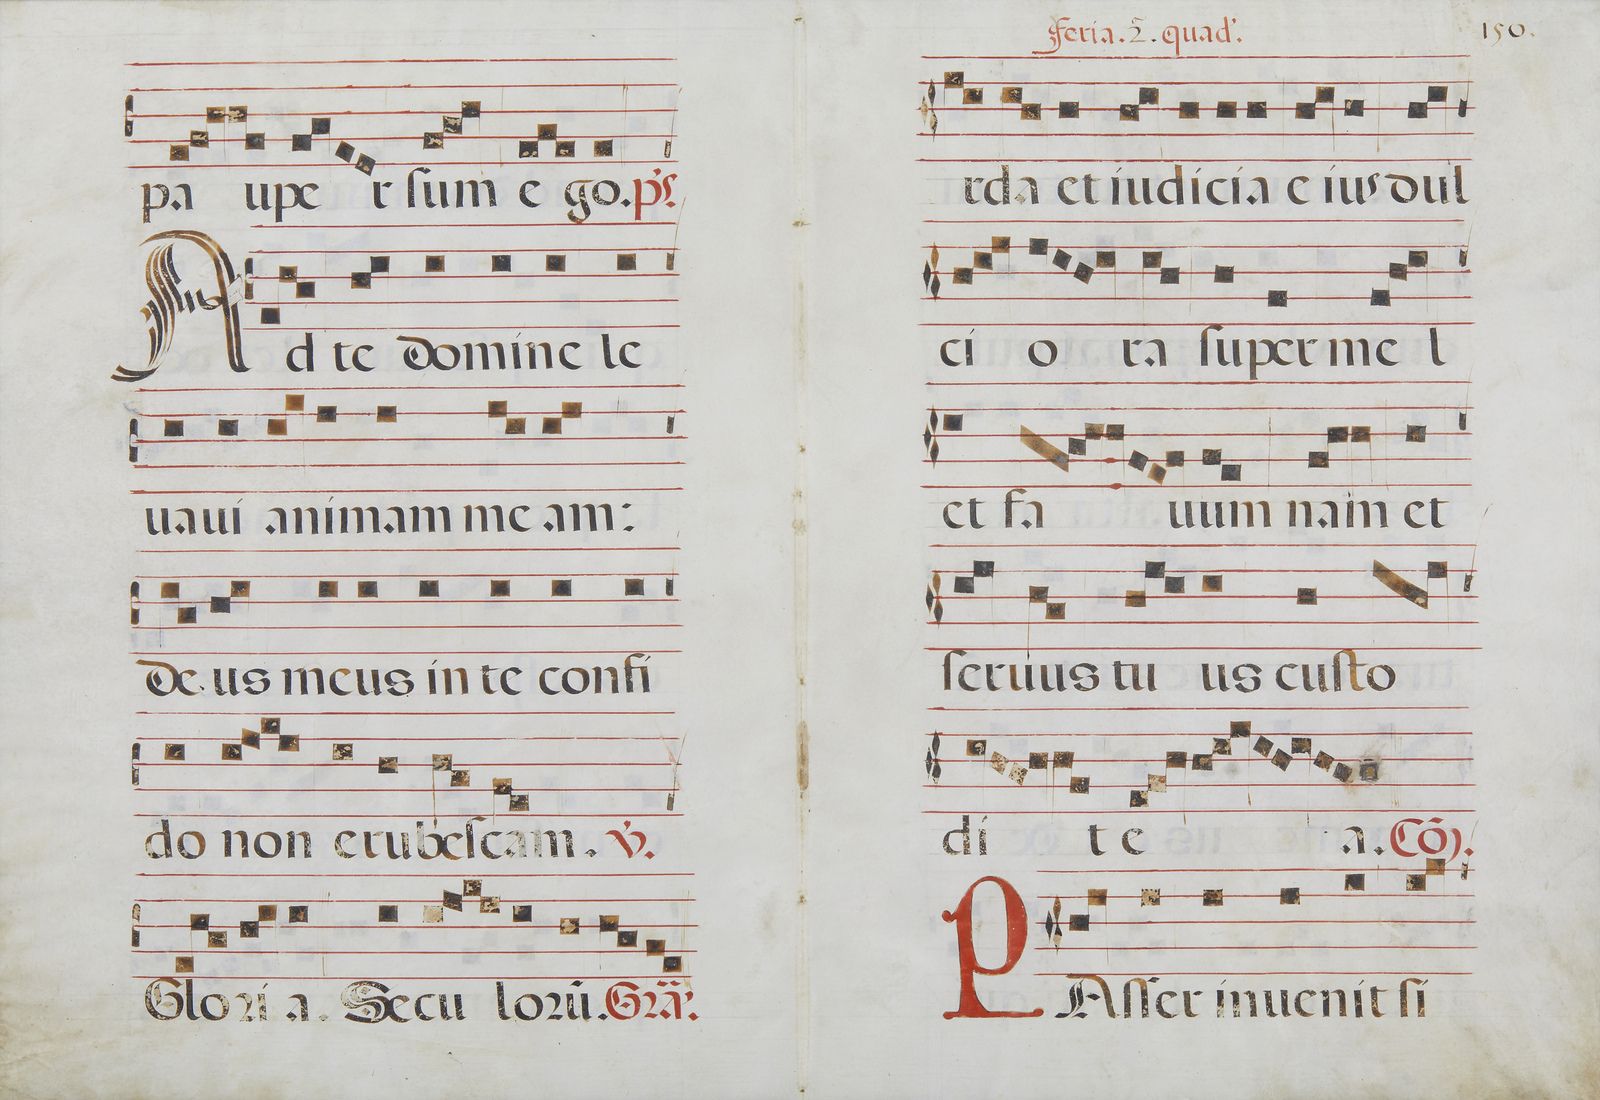 pa upe r sum e go. ps.
Ad te domine le
uaui animam me am:
de us meus in te confi
do non erubescam. v.
Glori a. Secu lorū. Grã.
Feria. 2. quad. 150.
rda et iudicia e ius dul
ci o ra super me l
et fa uum nam et
seruus tu us custo
di t e a. Cōȷ.
PAsser inuenit si